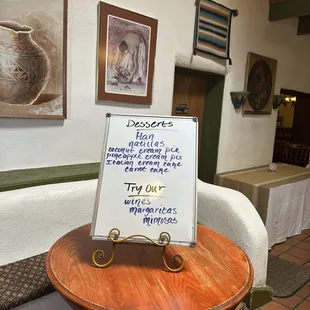 Desserts
Flan
natillas
coconut cream pie
pineapple cream pie
Italian cream cake
carrot cake
Try Our
wines
margaritas
mimosas